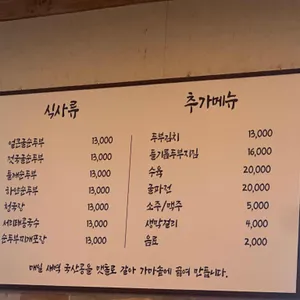 식사류
얼큰굴순두부 13,000
전주굴순두부 13,000
들깨순두부 13,000
하얀순두부 13,000
청국장 13,000
서리태콩국수 13,000
순두부찌개포장 13,000
추가메뉴
두부김치 13,000
들기름두부지짐 16,000
수육 20,000
굴파전 20,000
소주/맥주 5,000
생막걸리 4,000
음료 2,000
매일 새벽 국산콩을 맷돌로 갈아 가마솥에 끓여 만듭니다.